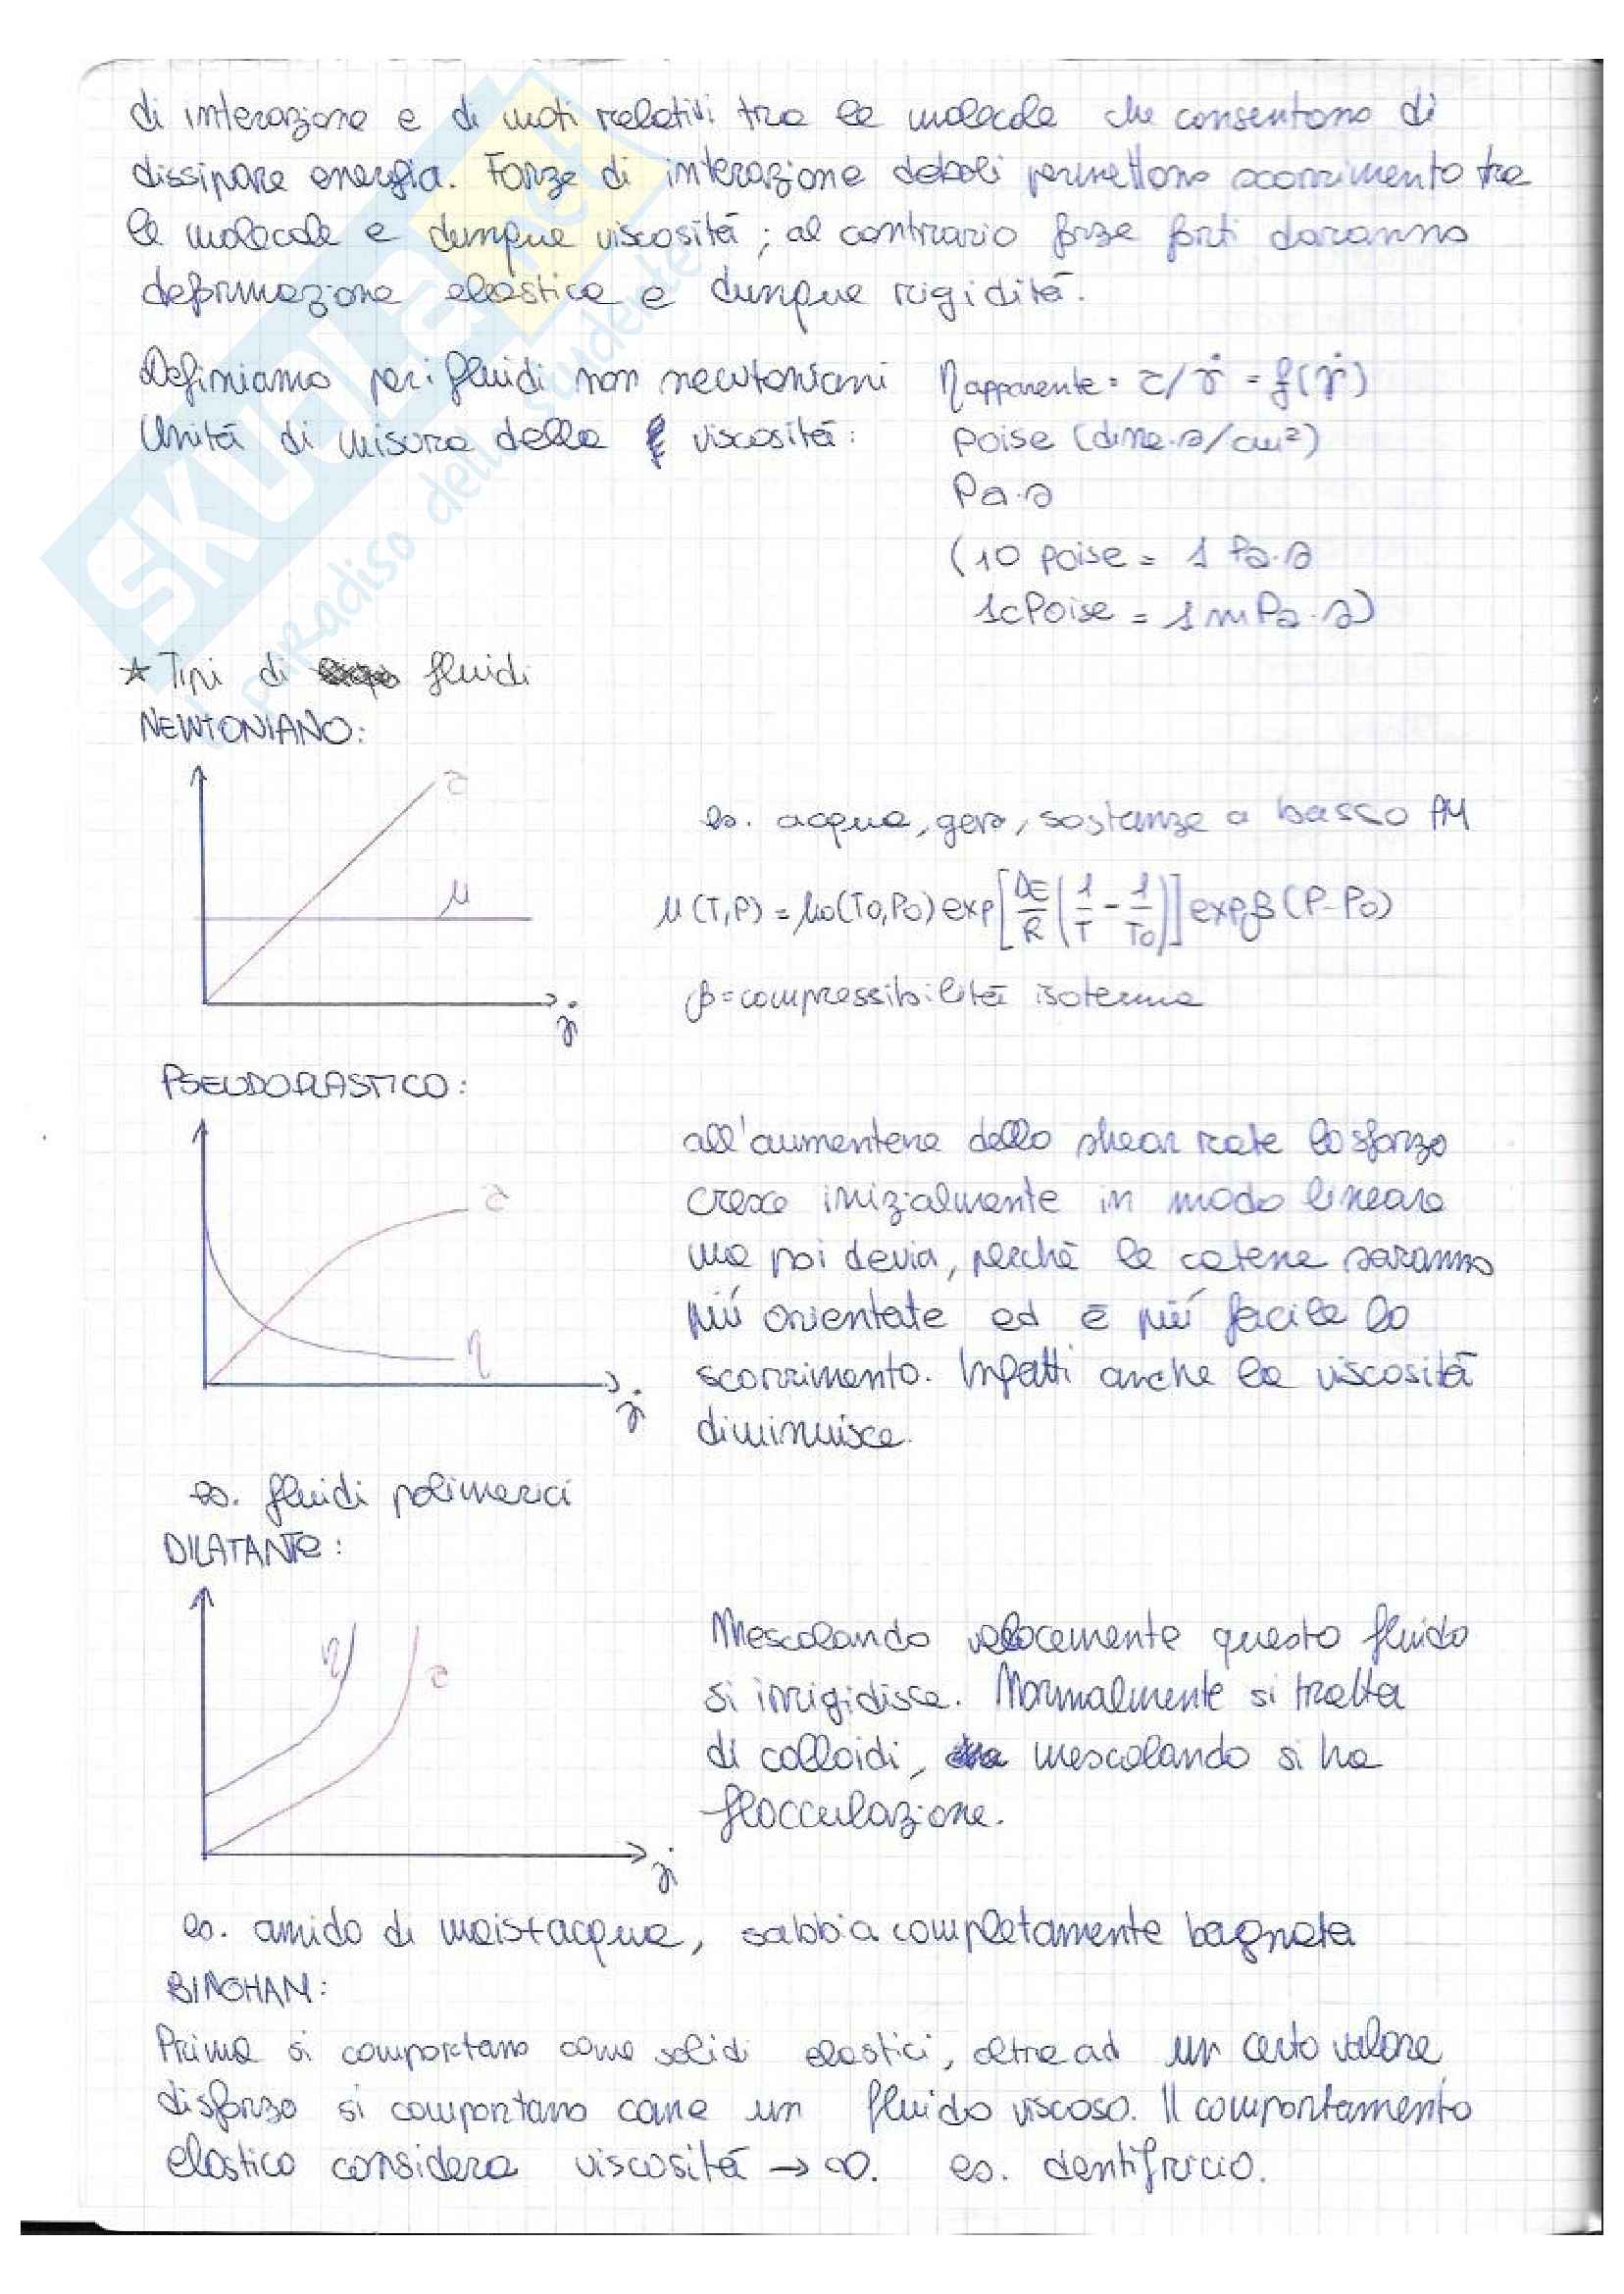 di interazione e di moti relativi tra le molecole che consentono di
dissipare energia. Forze di interazione deboli permettono scorrimento tra
le molecole e dunque viscosità; al contrario forze forti daranno
deformazione elastica e dunque rigidità.
Definiamo per i fluidi non newtoniani η apparente = τ/γ̇ = f(γ̇)
Unità di misura della viscosità: poise (dine·s/cm²)
Pa·s
(10 poise = 1 Pa·s
1cPoise = 1 mPa·s)
* Tipi di fluidi
NEWTONIANO:
τ
es. acqua, gas, sostanze a basso PM
μ
μ(T,P) = μ0(T0,P0) exp[ΔE/R (1/T - 1/T0)] exp β(P-P0)
β = compressibilità isoterma
γ̇
PSEUDOPLASTICO:
all'aumentare dello shear rate lo sforzo
τ
cresce inizialmente in modo lineare
ma poi devia, perchè le catene saranno
più orientate ed è più facile lo
η
scorrimento. Infatti anche la viscosità
γ̇
diminuisce.
es. fluidi polimerici
DILATANTE:
Mescolando velocemente questo fluido
η
τ
si irrigidisce. Normalmente si tratta
di colloidi, mescolando si ha
flocculazione.
γ̇
es. amido di mais+acqua, sabbia completamente bagnata
BINGHAM:
Prima si comportano come solidi elastici, oltre ad un certo valore
di sforzo si comportano come un fluido viscoso. Il comportamento
elastico considera viscosità → ∞. es. dentifricio.
SKUOLA.net
il paradiso dello studente